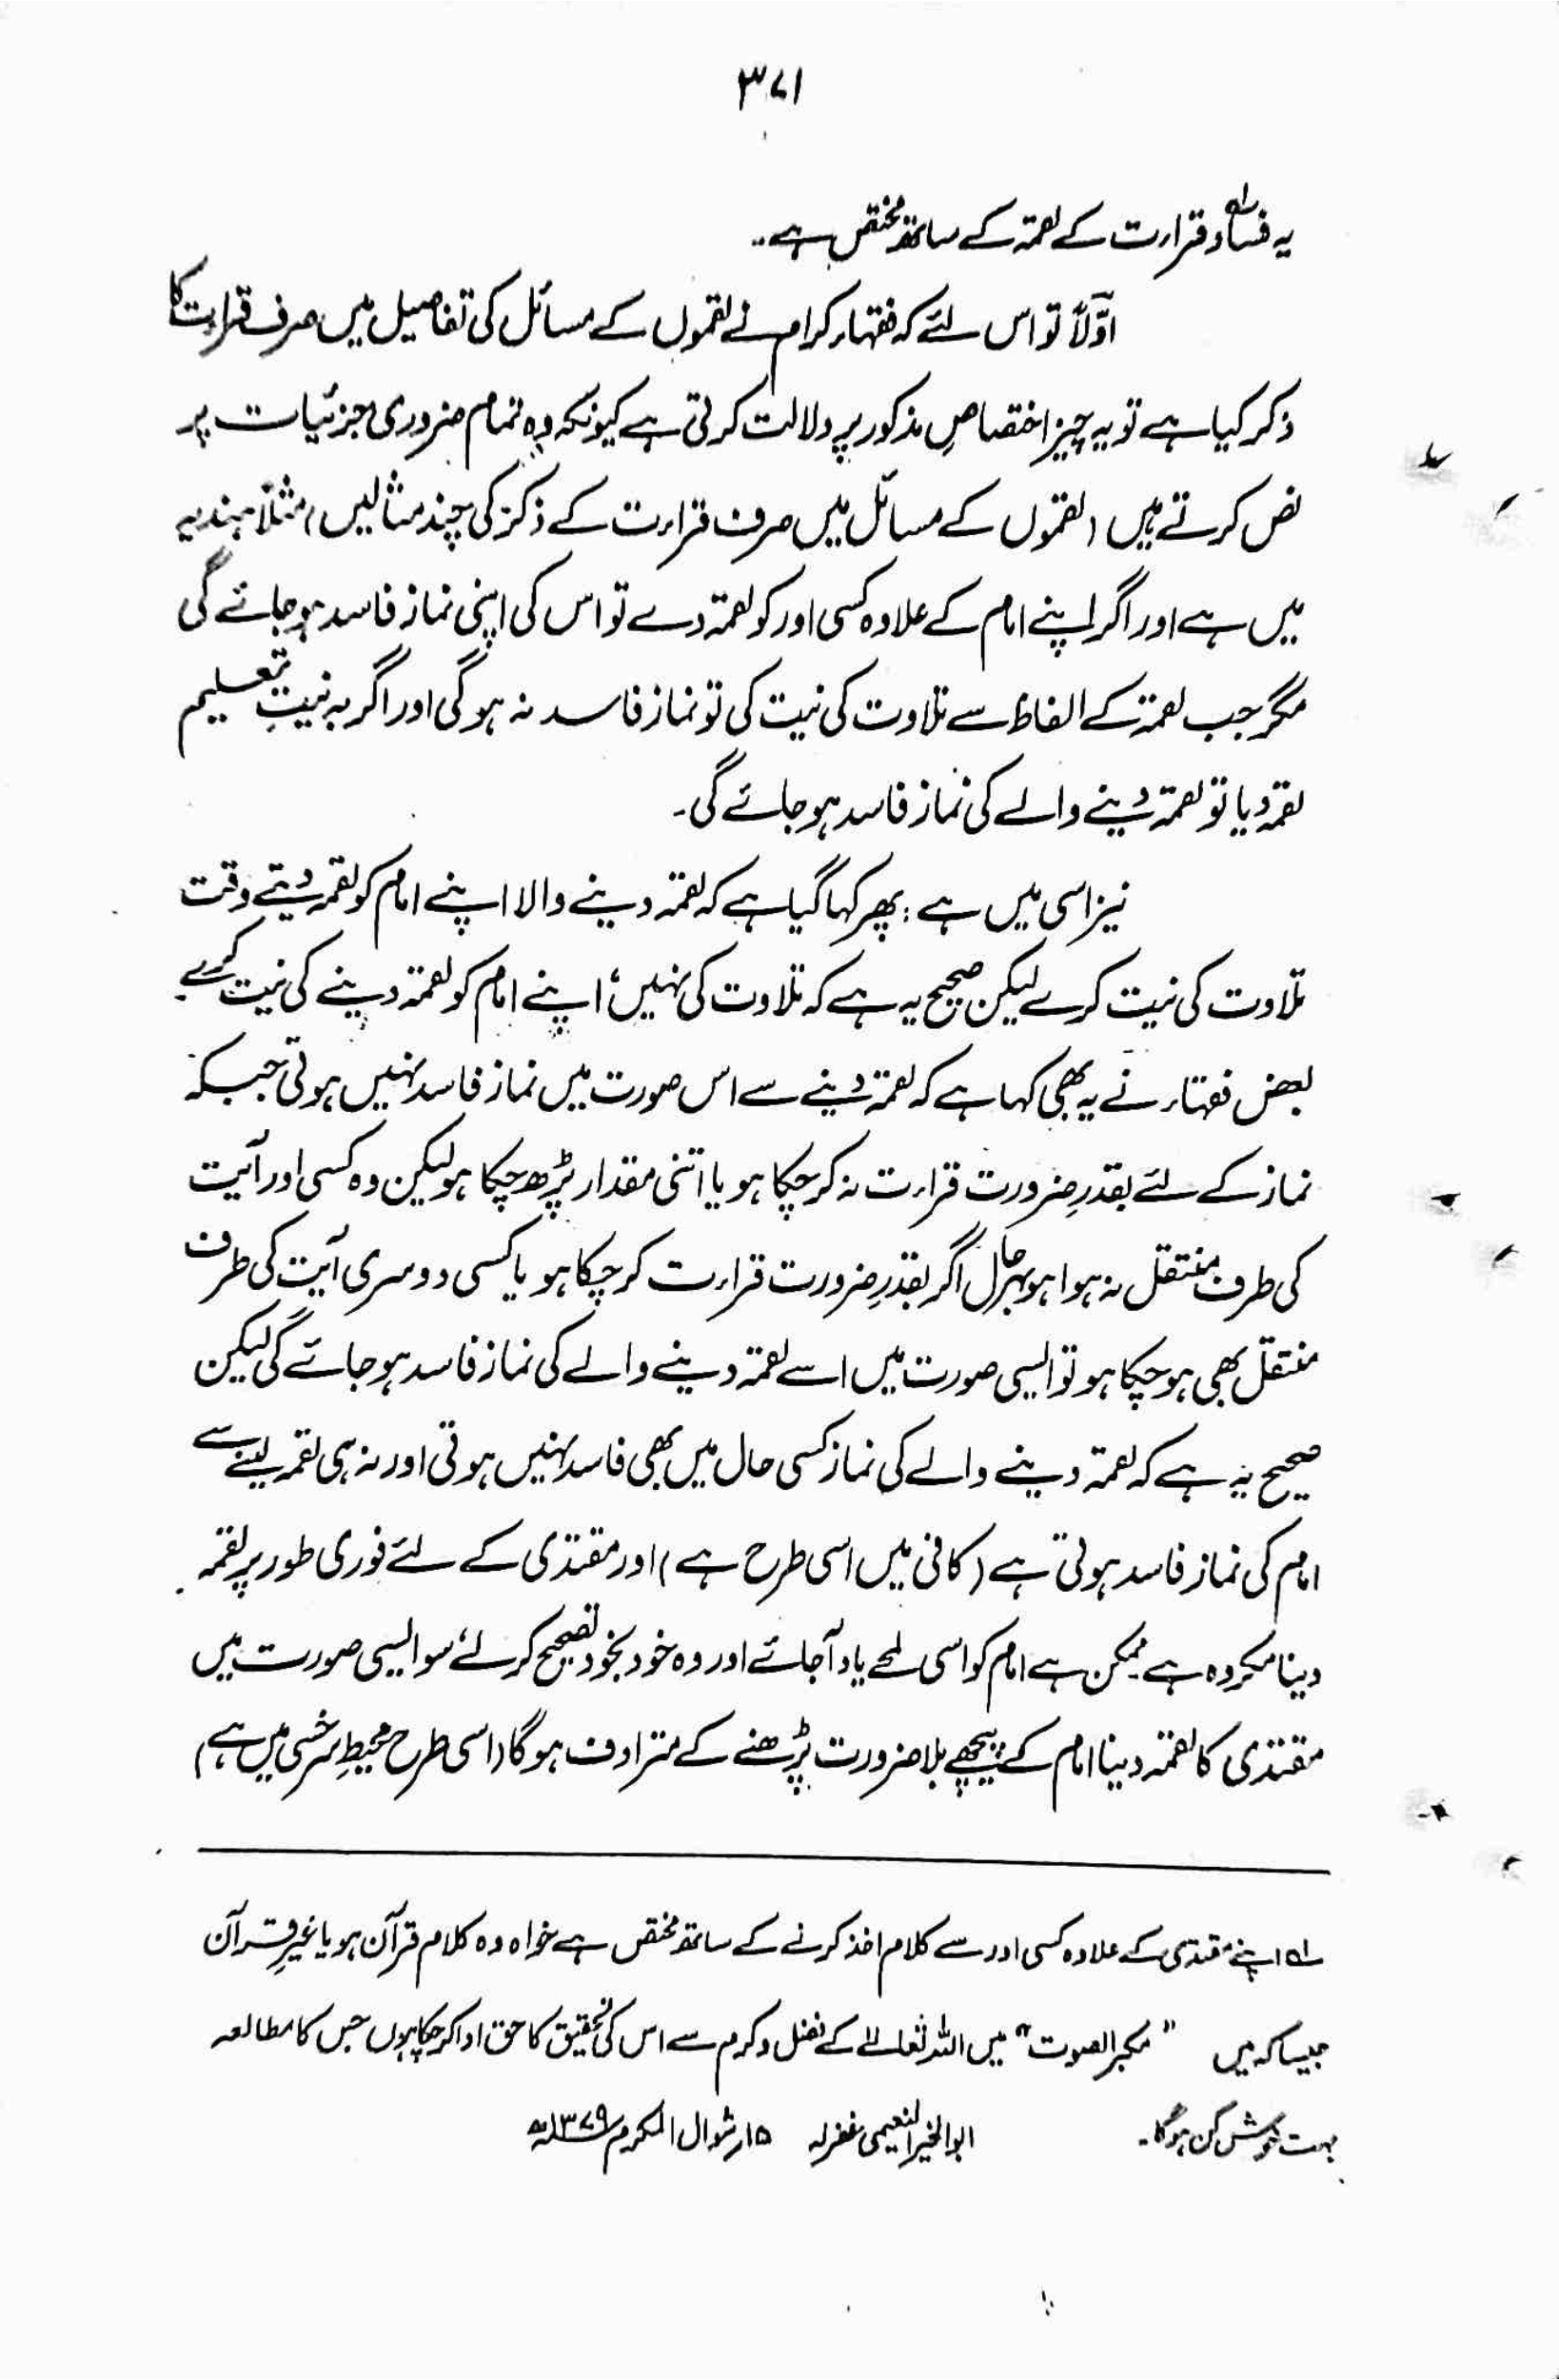 ۳۷۱
یہ فساد؎۱ قراءت کے لقمہ کے ساتھ مختص ہے۔
اوّلاً تو اس لئے کہ فقہاء کرام نے لقموں کے مسائل کی تفاصیل میں صرف قراءت کا
ذکر کیا ہے تو یہ چیز اختصاصِ مذکور پر دلالت کرتی ہے کیونکہ وہ تمام ضروری جزئیات پر
نص کرتے ہیں (لقموں کے مسائل میں صرف قراءت کے ذکر کی چند مثالیں) مثلاً ہندیہ
میں ہے اور اگر اپنے امام کے علاوہ کسی اور کو لقمہ دے تو اس کی اپنی نماز فاسد ہو جائے گی
مگر جب لقمہ کے الفاظ سے تلاوت کی نیت کی تو نماز فاسد نہ ہو گی اور اگر بہ نیتِ تعلیم
لقمہ دیا تو لقمہ دینے والے کی نماز فاسد ہو جائے گی۔
نیز اسی میں ہے : پھر کہا گیا ہے کہ لقمہ دینے والا اپنے امام کو لقمہ دیتے وقت
تلاوت کی نیت کرے لیکن صحیح یہ ہے کہ تلاوت کی نہیں، اپنے امام کو لقمہ دینے کی نیت کرے۔
بعض فقہاء نے یہ بھی کہا ہے کہ لقمہ دینے سے اس صورت میں نماز فاسد نہیں ہوتی جبکہ
نماز کے لئے بقدرِ ضرورت قراءت نہ کر چکا ہو یا اتنی مقدار پڑھ چکا ہو لیکن وہ کسی اور آیت
کی طرف منتقل نہ ہوا ہو بہرحال اگر بقدرِ ضرورت قراءت کر چکا ہو یا کسی دوسری آیت کی طرف
منتقل بھی ہو چکا ہو تو ایسی صورت میں اسے لقمہ دینے والے کی نماز فاسد ہو جائے گی لیکن
صحیح یہ ہے کہ لقمہ دینے والے کی نماز کسی حال میں بھی فاسد نہیں ہوتی اور نہ ہی لقمہ لینے سے
امام کی نماز فاسد ہوتی ہے (کافی میں اسی طرح ہے) اور مقتدی کے لئے فوری طور پر لقمہ
دینا مکروہ ہے ممکن ہے امام کو اسی لمحے یاد آجائے اور وہ خود بخود تصحیح کر لے، سو ایسی صورت میں
مقتدی کا لقمہ دینا امام کے پیچھے بلا ضرورت پڑھنے کے مترادف ہو گا (اسی طرح محیطِ سرخسی میں ہے)
؎۱ اپنے مقتدی کے علاوہ کسی اور سے کلام اخذ کرنے کے ساتھ مختص ہے خواہ وہ کلام قرآن ہو یا غیرِ قرآن
جیسا کہ میں "مکبر الصوت" میں اللہ تعالےٰ کے فضل و کرم سے اس کی تحقیق کا حق ادا کر چکا ہوں جس کا مطالعہ
بہت خوش کن ہوگا۔ ابو الخیر النعیمی غفرلہ ۱۵ر شوال المکرم ۱۳۷۹ھ